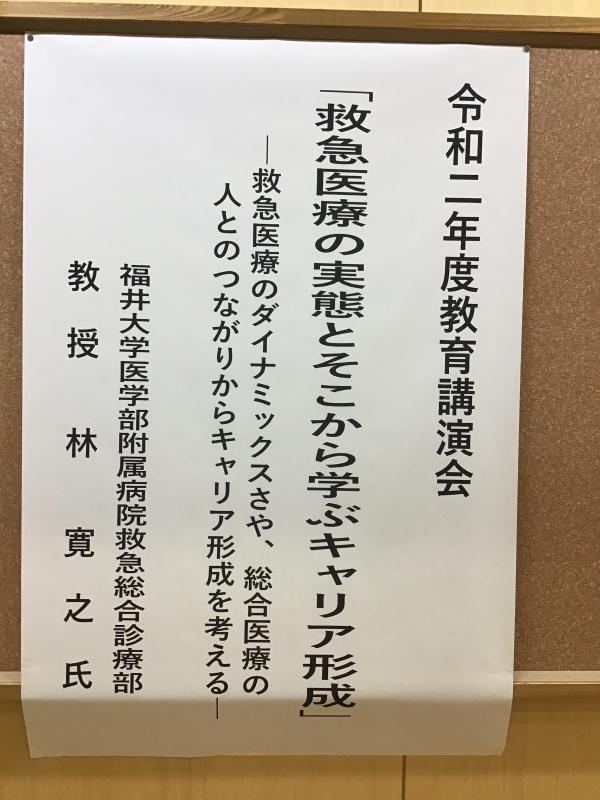 令和二年度教育講演会
「救急医療の実態とそこから学ぶキャリア形成」
―救急医療のダイナミックスさや、総合医療の
人とのつながりからキャリア形成を考える―
福井大学医学部附属病院救急総合診療部
教授 林 寛之氏